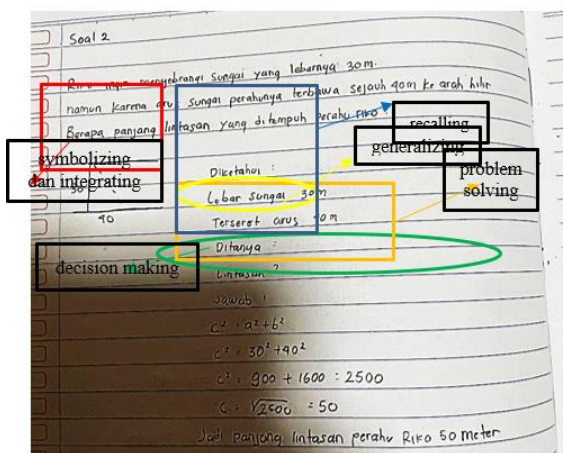 Soal 2
Riko ingin menyebrangi sungai yang lebarnya 30m.
namun karena arus sungai perahunya terbawa sejauh 40m ke arah hilir
Berapa panjang lintasan yang ditempuh perahu Riko
recalling
generalizing
symbolizing
dan integrating
problem
solving
30
40
Diketahui :
Lebar sungai 30m
Terseret arus 40m
Ditanya :
decision making
Lintasan ?
Jawab :
c² = a² + b²
c² = 30² + 40²
c² = 900 + 1600 : 2500
c = √2500 = 50
Jadi panjang lintasan perahu Riko 50 meter